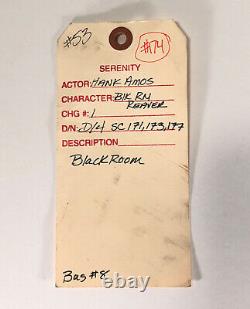 #53
#74
SERENITY
ACTOR: HANK AMOS
CHARACTER: Blk RM
REAVER
CHG #: 1
D/N: D/4 SC 171, 173, 177
DESCRIPTION
Black Room
Bus #8